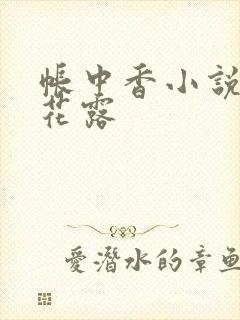 帳中香小說
花露
愛潛水的章魚